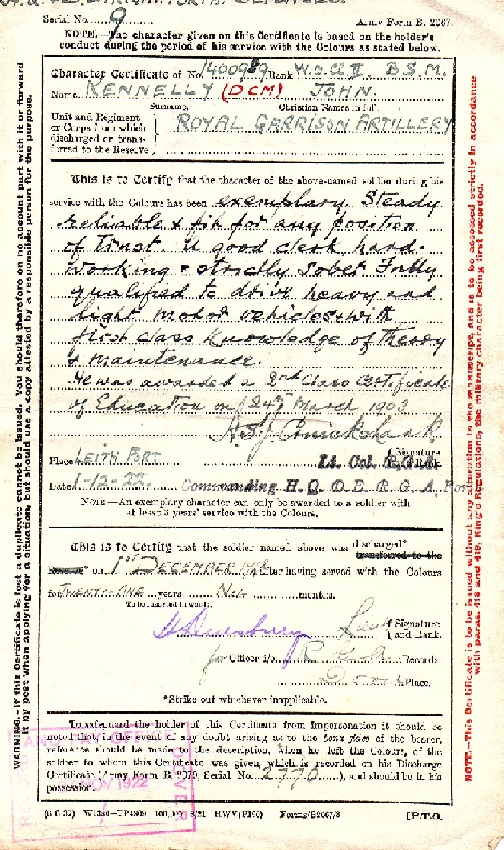 Serial No. 9
Army Form B. 2067.
NOTE.—The character given on this Certificate is based on the holder's
conduct during the period of his service with the Colours as stated below.
Character Certificate of No. 1400989 Rank W.O. Cl II B.S.M.
Name KENNELLY (DCM) JOHN.
Surname. Christian Names in full.
Unit and Regiment
or Corps from which
discharged or trans-
ferred to the Reserve
ROYAL GARRISON ARTILLERY
This is to Certify that the character of the above-named soldier during his
service with the Colours has been exemplary. Steady
reliable & fit for any position
of Trust. A good clerk hard-
working & strictly sober. Fully
qualified to drive heavy and
light motor vehicles with
first class knowledge of Theory
& Maintenance
He was awarded a 2nd Class Certificate
of Education on 24th March 1903
Signature
Place LEITH FORT Lt. Col. R.G.A.
Dated 1-12-22. Commanding H.Q. O.E.R.G.A.
NOTE—An exemplary character can only be awarded to a soldier with
at least 3 years' service with the Colours.
This is to Certify that the soldier named above was discharged*
transferred to the
on 1st DECEMBER 1922 after having served with the Colours
for TWENTY-ONE years NIL months.
To be entered in words.
Lieut Signature
and Rank.
for Officer i/c R.G.A. Records
Place.
*Strike out whichever inapplicable.
To safeguard the holder of this Certificate from impersonation it should be
noted that in the event of any doubt arising as to the bona fides of the bearer,
reference should be made to the description, when he left the Colours, of the
soldier to whom this Certificate was given, which is recorded on his Discharge
Certificate (Army Form B. 2079, Serial No. 2770), and should be in his
possession.
NOV 1922
DOVER
Forms/B2067/8
[P.T.O.
WARNING.—If this Certificate is lost a duplicate cannot be issued. You should therefore on no account part with it or forward
it by post when applying for a situation, but should use a copy attested by a responsible person for the purpose.
NOTE.—This Certificate is to be issued without any alteration in the manuscript, and is to be assessed strictly in accordance
with paras. 418 and 419, King's Regulations, the military character being first recorded.